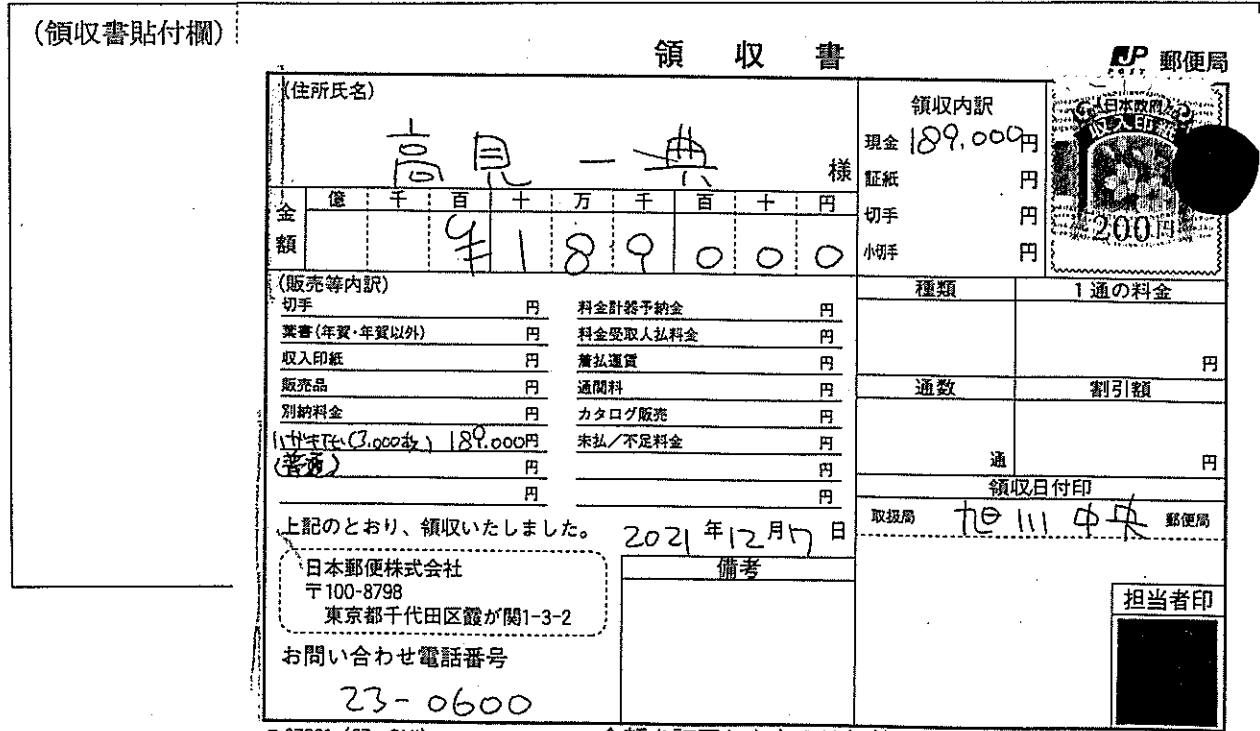 (領収書貼付欄)
領 収 書
JP POST 郵便局
(住所氏名)
高見一典 様
領収内訳
現金 189,000円
証紙 円
切手 円
小切手 円
日本政府
収入印紙
200円
金額
億 千 百 十 万 千 百 十 円
¥ 1 8 9 0 0 0
(販売等内訳)
切手 円
葉書(年賀・年賀以外) 円
収入印紙 円
販売品 円
別納料金 円
はがき代(3,000枚) 189,000円
(普通) 円
円
料金計器予納金 円
料金受取人払料金 円
着払運賃 円
通関料 円
カタログ販売 円
未払/不足料金 円
円
円
種類 1通の料金
円
通数 割引額
通 円
領収日付印
取扱局 旭川中央 郵便局
上記のとおり、領収いたしました。
2021年12月17日
日本郵便株式会社
〒100-8798
東京都千代田区霞が関1-3-2
お問い合わせ電話番号
23-0600
備考
担当者印